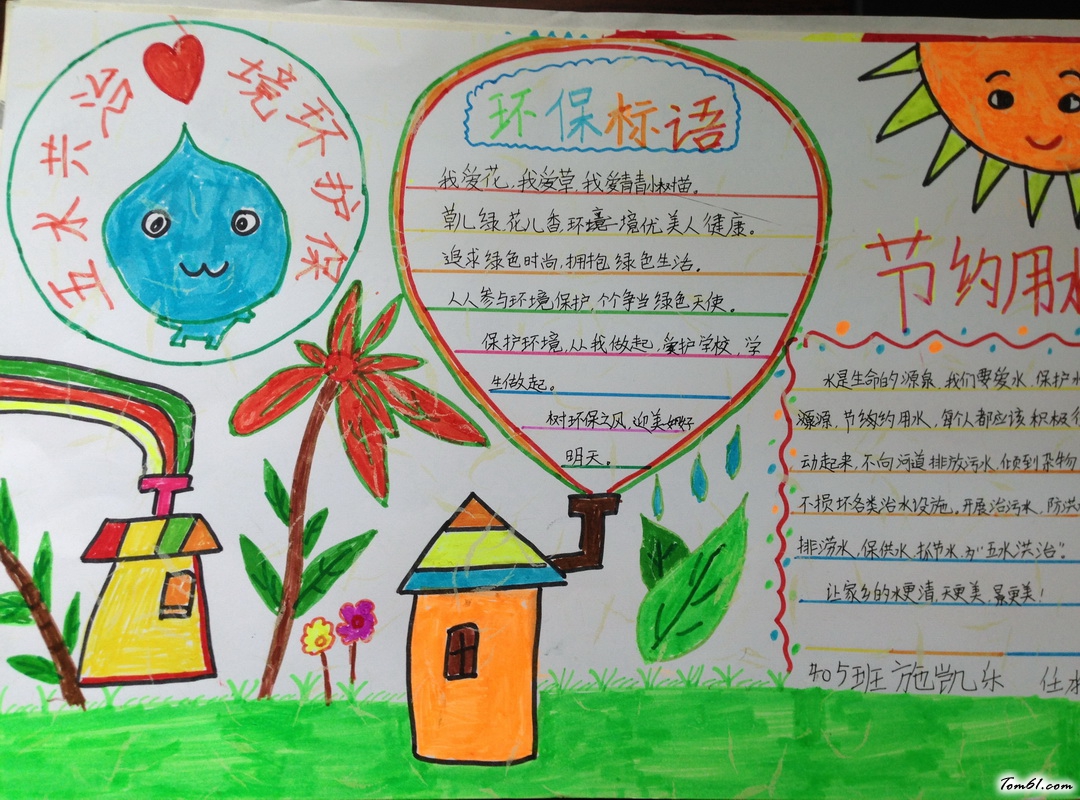 五水共治
保护环境
环保标语
我爱花,我爱草,我爱青青小树苗。
草儿绿,花儿香,环境优美人健康。
追求绿色时尚,拥抱绿色生活。
人人参与环境保护,个个争当绿色天使。
保护环境,从我做起,爱护学校,学
生做起。
树环保之风,迎美好
明天。
节约用水
水是生命的源泉,我们要爱水,保护水
源,节约用水,每个人都应该积极行
动起来,不向河道排放污水,倾到杂物
不损坏各类治水设施。开展治污水,防洪
排涝水,保供水,抓节水,为"五水洪治"。
让家乡的水更清,天更美,景更美!
405班 施凯乐
Tom61.com